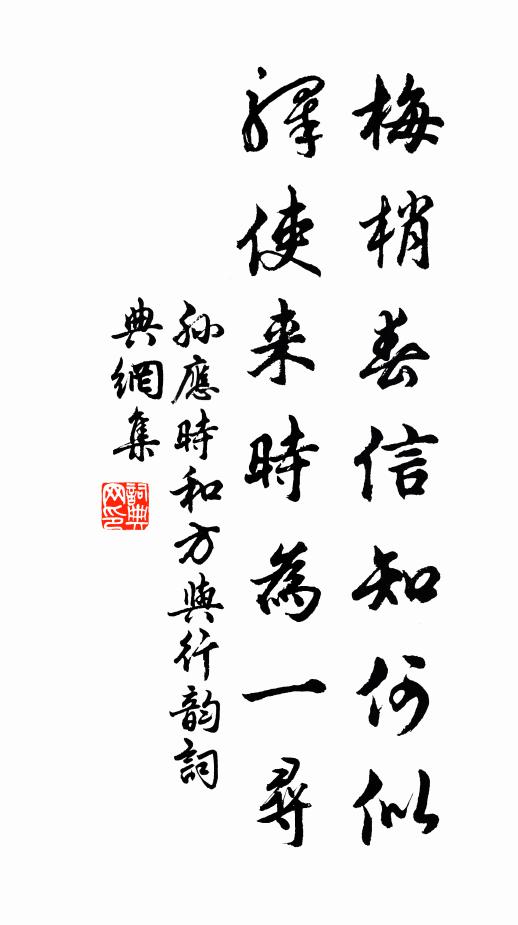 梅梢春信知何似
驛使来時為一尋
孙應時和方與行韵詞
典網集
詞典网印